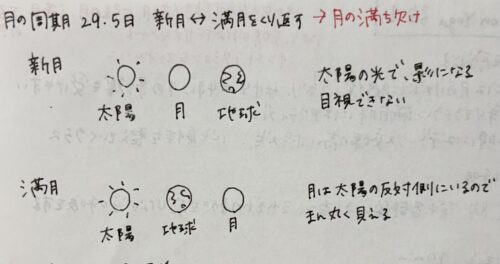 月の周期 29.5日 新月⇔満月をくり返す →月の満ち欠け
新月
太陽 月 地球
太陽の光で、影になる
目視できない
満月
太陽 地球 月
月は太陽の反対側にいるので
まん丸く見える